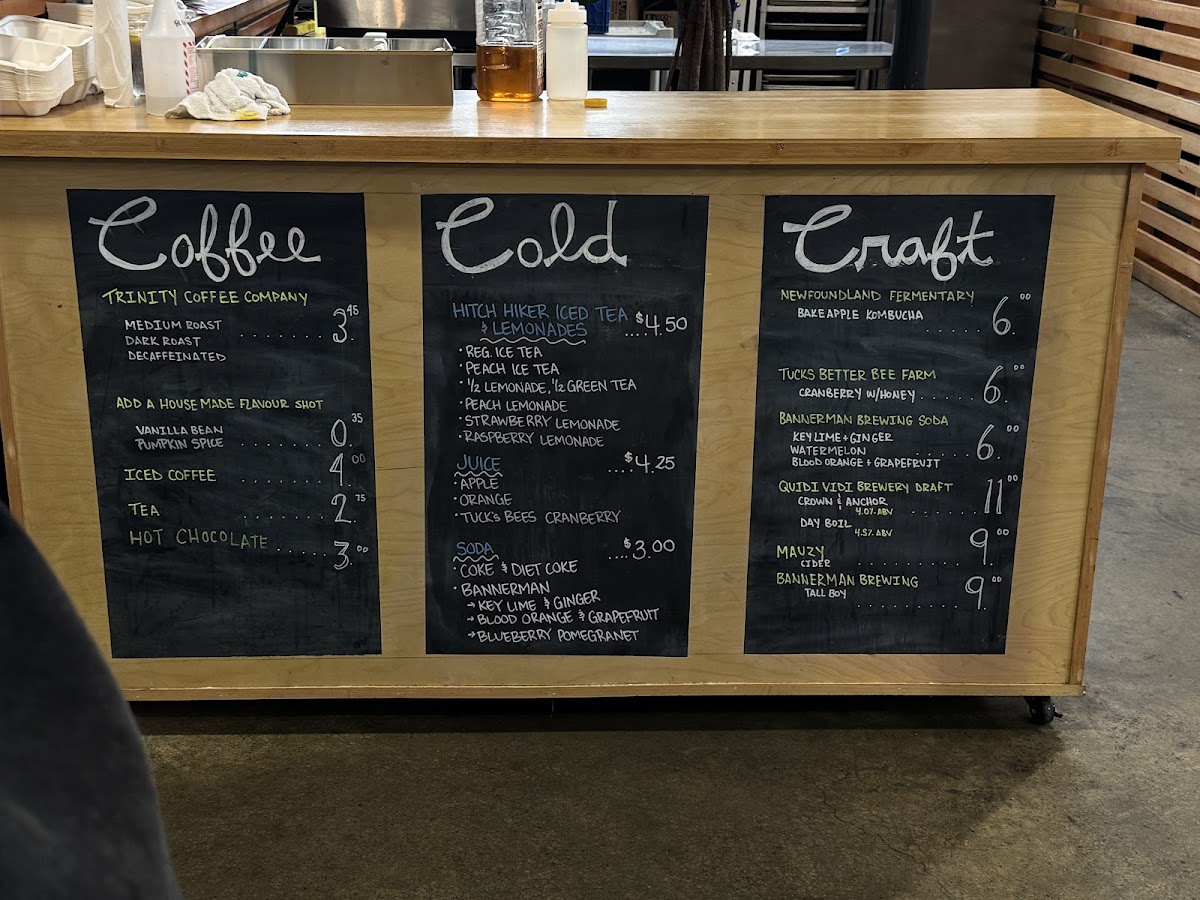 Coffee
TRINITY COFFEE COMPANY
MEDIUM ROAST
DARK ROAST ........ 3.45
DECAFFEINATED
ADD A HOUSE MADE FLAVOUR SHOT
VANILLA BEAN
PUMPKIN SPICE ........ 0.35
ICED COFFEE ........ 4.00
TEA ........ 2.75
HOT CHOCOLATE ...... 3.00
Cold
HITCH HIKER ICED TEA
& LEMONADES ....$4.50
• REG. ICE TEA
• PEACH ICE TEA
• 1/2 LEMONADE, 1/2 GREEN TEA
• PEACH LEMONADE
• STRAWBERRY LEMONADE
• RASPBERRY LEMONADE
JUICE ....$4.25
• APPLE
• ORANGE
• TUCK'S BEES CRANBERRY
SODA ....$3.00
• COKE & DIET COKE
• BANNERMAN
→ KEY LIME & GINGER
→ BLOOD ORANGE & GRAPEFRUIT
→ BLUEBERRY POMEGRANET
Craft
NEWFOUNDLAND FERMENTARY
BAKEAPPLE KOMBUCHA ...... 6.00
TUCKS BETTER BEE FARM
CRANBERRY W/HONEY ...... 6.00
BANNERMAN BREWING SODA
KEY LIME + GINGER
WATERMELON ........ 6.00
BLOOD ORANGE + GRAPEFRUIT
QUIDI VIDI BREWERY DRAFT
CROWN & ANCHOR ........ 11.00
4.0% ABV
DAY BOIL
4.5% ABV
MAUZY
CIDER ........ 9.00
BANNERMAN BREWING
TALL BOY ........ 9.00